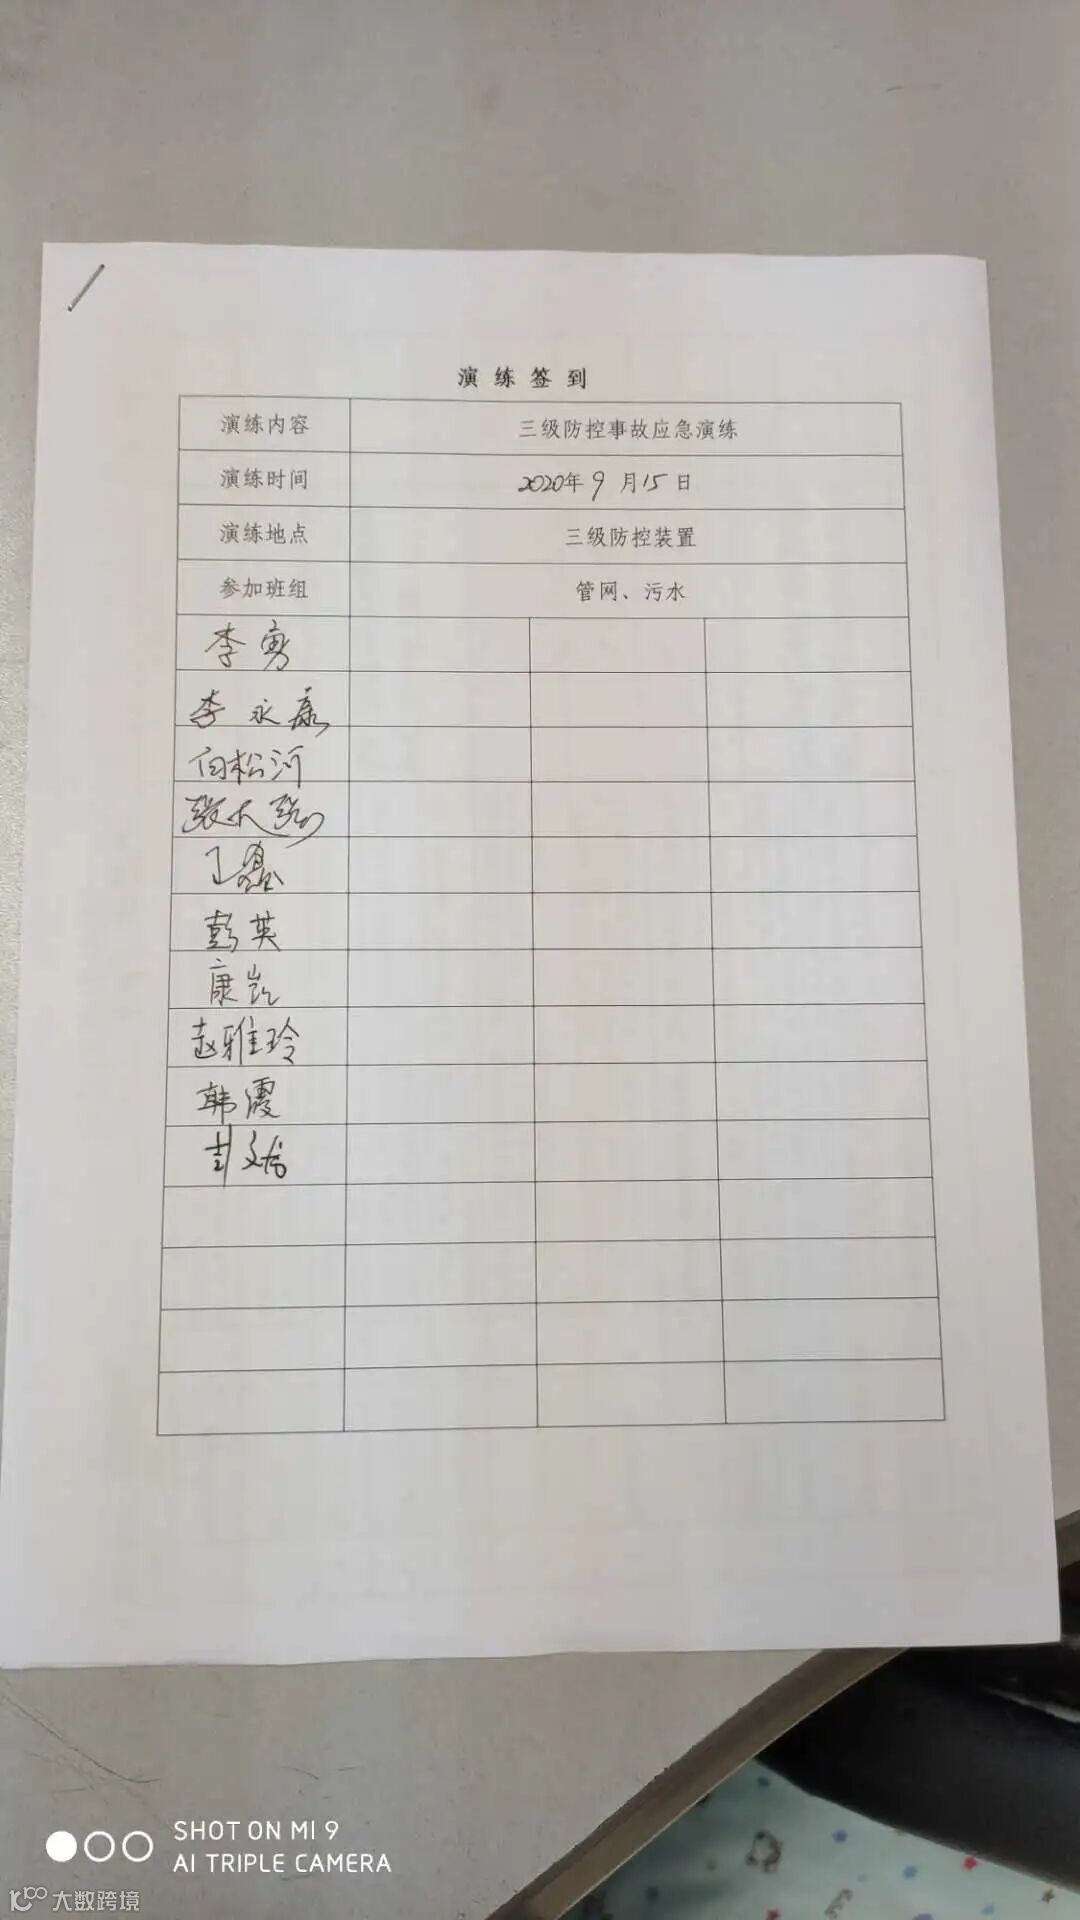 演练签到
演练内容 三级防控事故应急演练
演练时间 2020年9月15日
演练地点 三级防控装置
参加班组 管网、污水
李勇
李永康
向松河
张大
王磊
彭英
康凯
赵雅玲
韩霞
彭文
SHOT ON MI 9
AI TRIPLE CAMERA
大数跨境